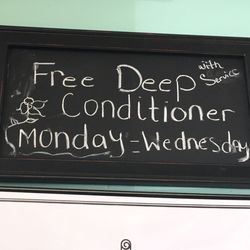 Free Deep with Service
Conditioner
Monday - Wednesday